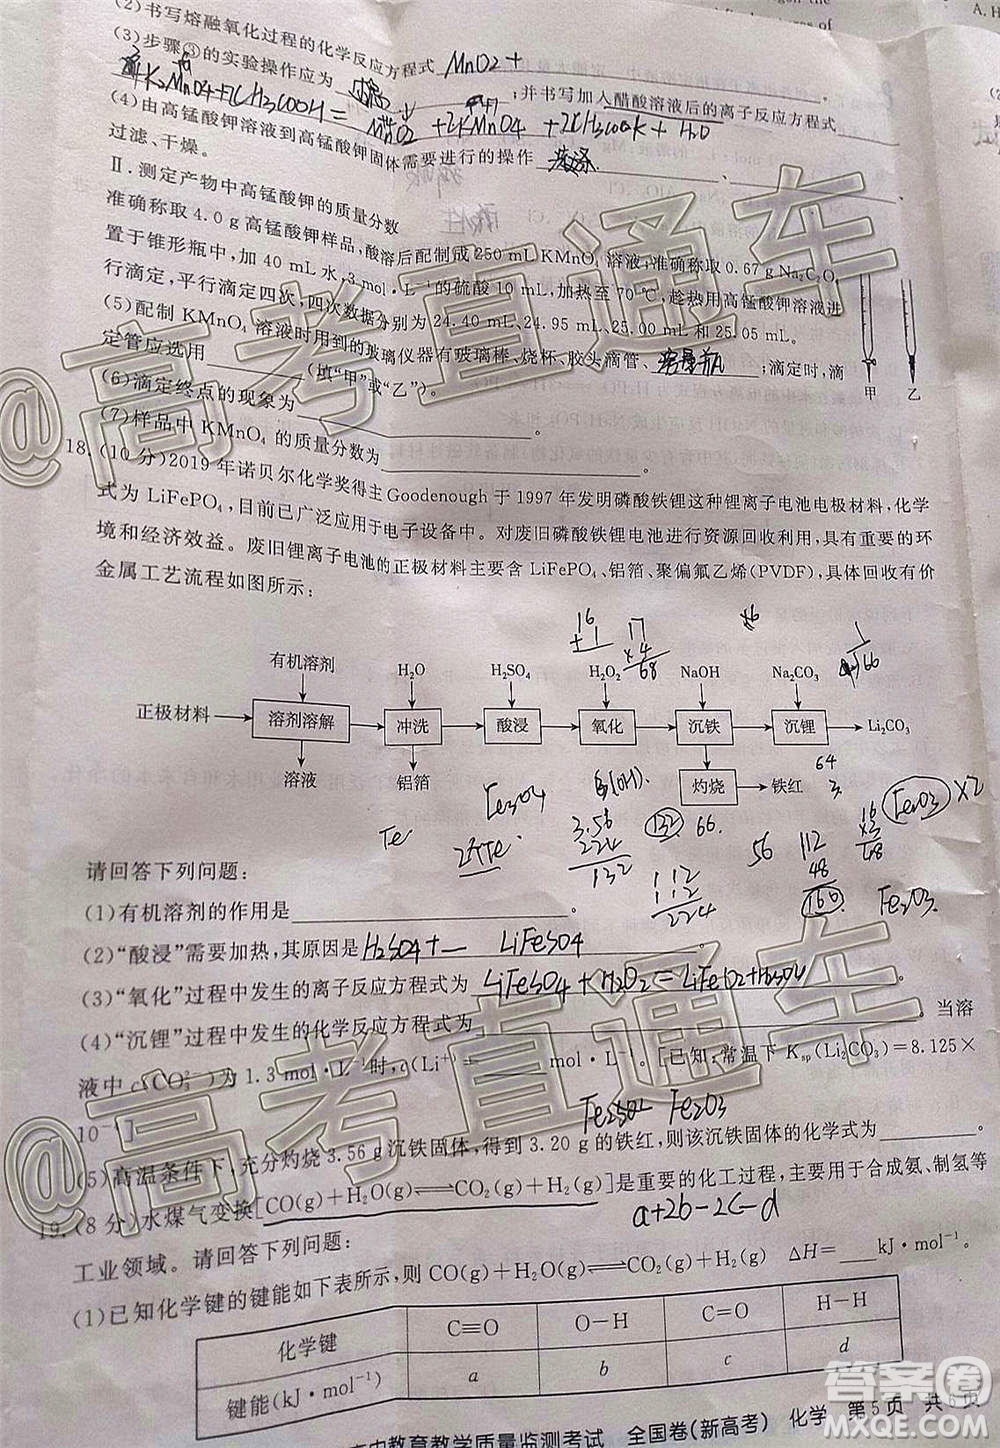 (2)书写熔融氧化过程的化学反应方程式 MnO2+
(3)步骤③的实验操作应为 ;并书写加入醋酸溶液后的离子反应方程式
K2MnO4+CH3COOH= MnO2 +2KMnO4 +2CH3COOK+ H2O
(4)由高锰酸钾溶液到高锰酸钾固体需要进行的操作 、 、
过滤、干燥。
Ⅱ.测定产物中高锰酸钾的质量分数
准确称取 4.0 g 高锰酸钾样品,酸溶后配制成 250 mL KMnO4 溶液,准确称取 0.67 g Na2C2O4
置于锥形瓶中,加 40 mL 水,3 mol·L⁻¹的硫酸 10 mL,加热至 70℃,趁热用高锰酸钾溶液进
行滴定,平行滴定四次,四次数据分别为 24.40 mL、24.95 mL、25.00 mL 和 25.05 mL。
(5)配制 KMnO4 溶液时用到的玻璃仪器有玻璃棒、烧杯、胶头滴管、容量瓶;滴定时,滴
定管应选用 (填“甲”或“乙”)。
甲 乙
(6)滴定终点的现象为 。
(7)样品中 KMnO4 的质量分数为 。
18.(10 分)2019 年诺贝尔化学奖得主Goodenough 于 1997 年发明磷酸铁锂这种锂离子电池电极材料,化学
式为 LiFePO4,目前已广泛应用于电子设备中。对废旧磷酸铁锂电池进行资源回收利用,具有重要的环
境和经济效益。废旧锂离子电池的正极材料主要含 LiFePO4、铝箔、聚偏氟乙烯(PVDF),具体回收有价
金属工艺流程如图所示:
16 17
+1 ×4
68
1
166
有机溶剂 H2O H2SO4 H2O2 NaOH Na2CO3
正极材料 溶剂溶解 冲洗 酸浸 氧化 沉铁 沉锂 Li2CO3
溶液 铝箔 灼烧 铁红
64
3
Fe3O4 Fe2O3 ×2
Fe 3.56 132 66. 56 112 16
×3
224 48 48
132 160 Fe2O3.
112
112
224
请回答下列问题:
(1)有机溶剂的作用是 。
(2)“酸浸”需要加热,其原因是 H2SO4+ LiFeSO4 。
(3)“氧化”过程中发生的离子反应方程式为 LiFeSO4+H2O2=LiFeO2+H2SO4 。
(4)“沉锂”过程中发生的化学反应方程式为 。当溶
液中 c(CO3²⁻)为 1.3 mol·L⁻¹时,c(Li⁺)= mol·L⁻¹。[已知:常温下 Ksp(Li2CO3)=8.125×
Fe2O3
(5)高温条件下,充分灼烧 3.56 g 沉铁固体,得到 3.20 g 的铁红,则该沉铁固体的化学式为 。
19.(8 分)水煤气变换[CO(g)+H2O(g)⇌CO2(g)+H2(g)]是重要的化工过程,主要用于合成氨、制氢等
a+2b-2c-d
工业领域。请回答下列问题:
(1)已知化学键的键能如下表所示,则 CO(g)+H2O(g)⇌CO2(g)+H2(g) ΔH= kJ·mol⁻¹。
化学键 C≡O O-H C=O H-H
键能(kJ·mol⁻¹) a b c d
教育教学质量监测考试 全国卷(新高考) 化学 第 5 页 共 6 页
@高考直通车
@高考直通车
答案圈
MXQE.COM